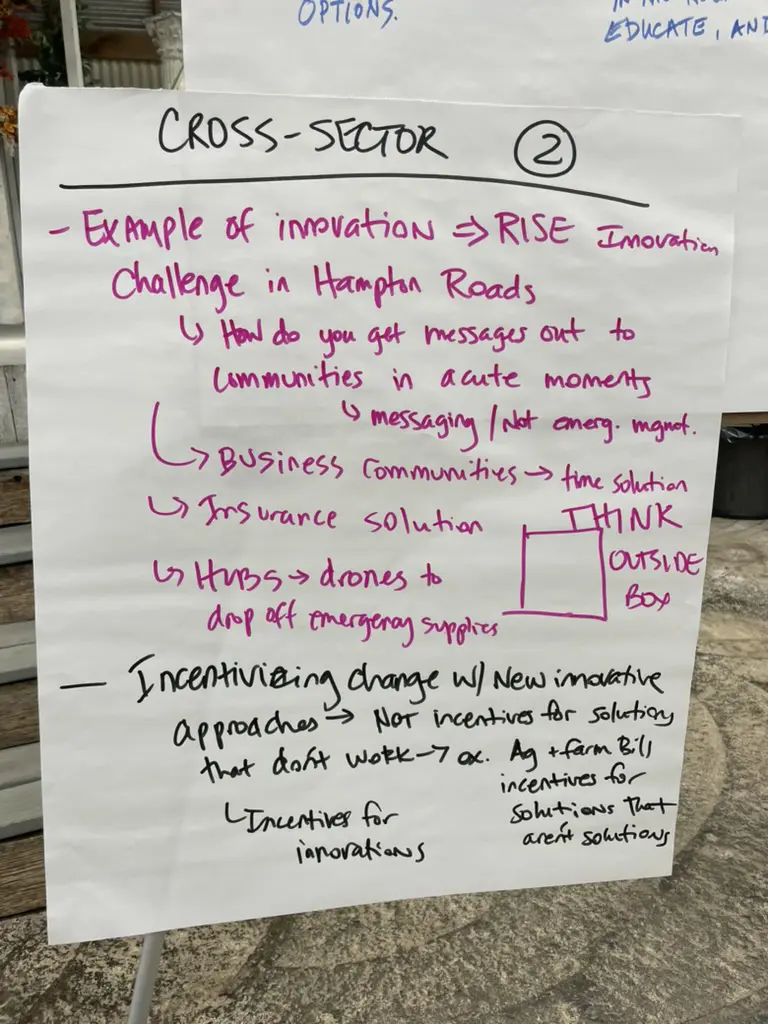 OPTIONS.
EDUCATE, AND
CROSS-SECTOR ②
- EXAMPLE OF innovation ⇒ RISE Innovation
Challenge in Hampton Roads
↳ How do you get messages out to
communities in acute moments
↳ messaging / Not emerg. mgmt.
↳ BUSINESS Communities → time solution
↳ Insurance solution
THINK
OUTSIDE
BOX
↳ HUBS → drones to
drop off emergency supplies
— Incentivizing change w/ New innovative
approaches → Not incentives for solution
that don't work → ex. Ag + farm Bill
incentives for
solutions that
aren't solutions
↳ Incentives for
innovations